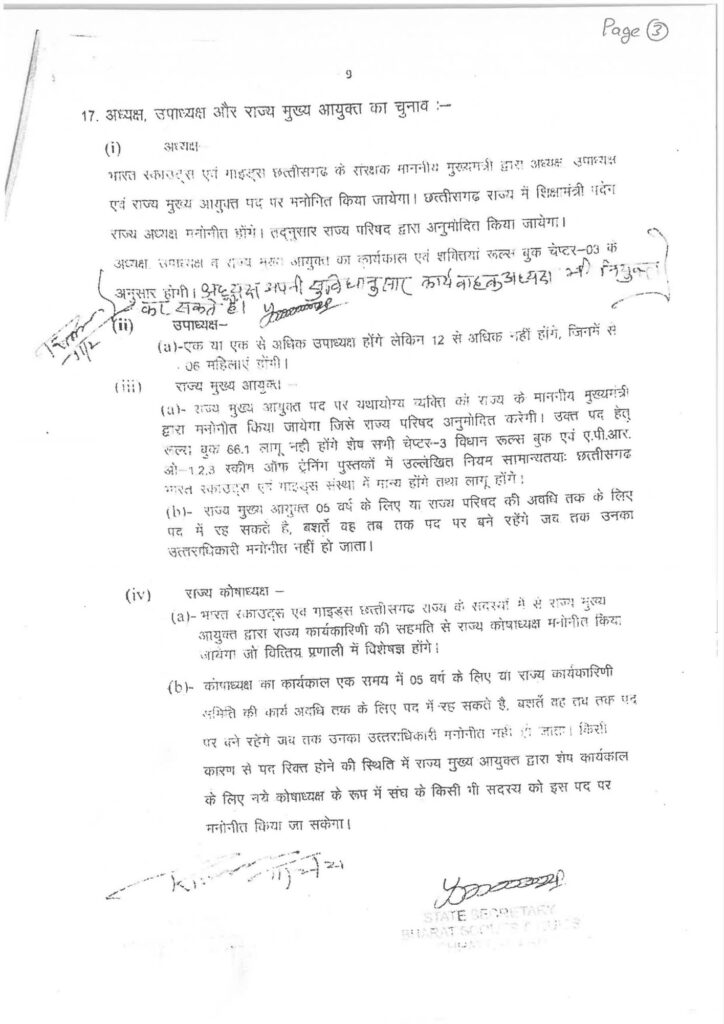 Page ③
9
17. अध्यक्ष, उपाध्यक्ष और राज्य मुख्य आयुक्त का चुनाव :–
(i) अध्यक्ष
भारत स्काउट्स एवं गाइड्स छत्तीसगढ के संरक्षक माननीय मुख्यमंत्री द्वारा अध्यक्ष उपाध्यक्ष
एवं राज्य मुख्य आयुक्त पद पर मनोनित किया जायेगा। छत्तीसगढ राज्य में शिक्षामंत्री पदेन
राज्य अध्यक्ष मनोनीत होंगे। तद्नुसार राज्य परिषद द्वारा अनुमोदित किया जायेगा।
अध्यक्ष, उपाध्यक्ष व राज्य मुख्य आयुक्त का कार्यकाल एवं शक्तियां रूल्स बुक चेप्टर–03 के
अनुसार होंगी। अध्यक्ष अपनी सुविधानुसार कार्यवाहक अध्यक्ष भी नियुक्त
कर सकते है।
(ii) उपाध्यक्ष–
(a)–एक या एक से अधिक उपाध्यक्ष होंगे लेकिन 12 से अधिक नहीं होंगे, जिनमें से
06 महिलाएं होंगी।
(iii) राज्य मुख्य आयुक्त –
(a)– राज्य मुख्य आयुक्त पद पर यथायोग्य व्यक्ति को राज्य के माननीय मुख्यमंत्री
द्वारा मनोनीत किया जायेगा जिसे राज्य परिषद अनुमोदित करेगी। उक्त पद हेतु
रूल्स बुक 66.1 लागू नही होंगे शेष सभी चेप्टर–3 विधान रूल्स बुक एवं ए.पी.आर.
ओ–1.2.3 स्कीम ऑफ ट्रेनिंग पुस्तकों में उल्लेखित नियम सामान्यतयाः छत्तीसगढ
भारत स्काउट्स एवं गाइड्स संस्था में मान्य होंगे तथा लागू होंगे।
(b)– राज्य मुख्य आयुक्त 05 वर्ष के लिए या राज्य परिषद की अवधि तक के लिए
पद में रह सकते है, बशर्ते वह तब तक पद पर बने रहेंगे जब तक उनका
उत्तराधिकारी मनोनीत नहीं हो जाता।
(iv) राज्य कोषाध्यक्ष –
(a)–भारत स्काउट्स एवं गाइड्स छत्तीसगढ राज्य के सदस्यों में से राज्य मुख्य
आयुक्त द्वारा राज्य कार्यकारिणी की सहमति से राज्य कोषाध्यक्ष मनोनीत किया
जायेगा जो वित्तिय प्रणाली में विशेषज्ञ होंगे।
(b)– कोषाध्यक्ष का कार्यकाल एक समय में 05 वर्ष के लिए या राज्य कार्यकारिणी
समिति की कार्य अवधि तक के लिए पद में रह सकते है, बशर्ते वह तब तक पद
पर बने रहेंगे जब तक उनका उत्तराधिकारी मनोनीत नहीं हो जाता। किसी
कारण से पद रिक्त होने की स्थिति में राज्य मुख्य आयुक्त द्वारा शेष कार्यकाल
के लिए नये कोषाध्यक्ष के रूप में संघ के किसी भी सदस्य को इस पद पर
मनोनीत किया जा सकेगा।
STATE SECRETARY
BHARAT SCOUTS